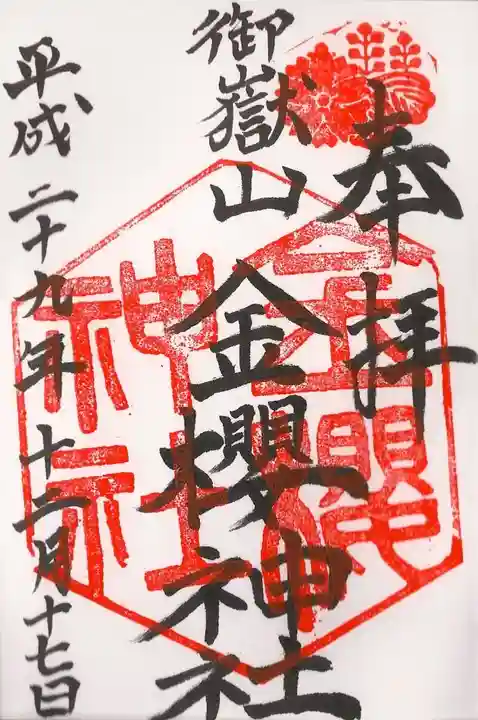 奉拝
御嶽山
金櫻神社
平成二十九年十二月十七日
金櫻
神社